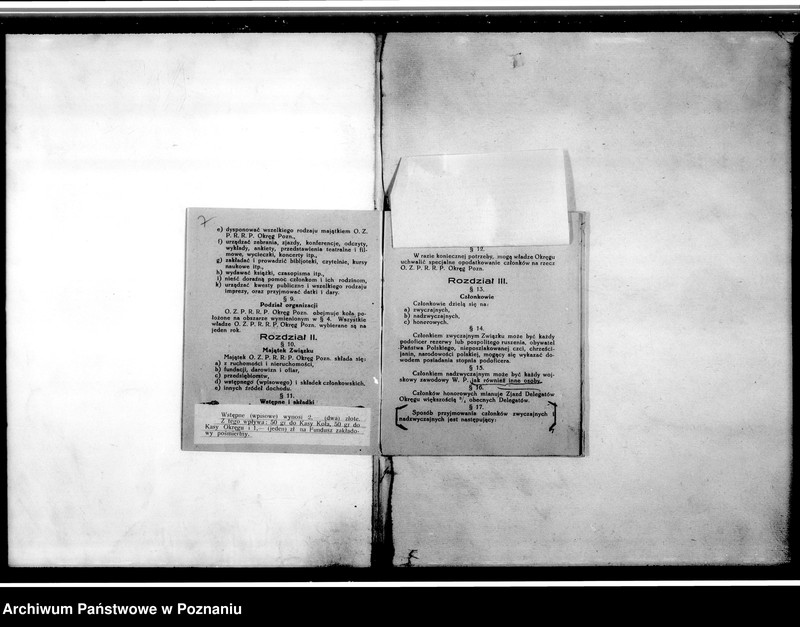 7
e) dysponować wszelkiego rodzaju majątkiem O. Z.
P. R. R. P. Okręg Pozn.,
f) urządzać zebrania, zjazdy, konferencje, odczyty,
wykłady, ankiety, przedstawienia teatralne i fil-
mowe, wycieczki, koncerty itp.,
g) zakładać i prowadzić bibljoteki, czytelnie, kursy
naukowe itp.,
h) wydawać książki, czasopisma itp.,
i) nieść doraźną pomoc członkom i ich rodzinom,
k) urządzać kwesty publiczne i wszelkiego rodzaju
imprezy, oraz przyjmować datki i dary.
§ 9.
Podział organizacji
O. Z. P. R. R. P. Okręg Pozn. obejmuje koła po-
łożone na obszarze wymienionym w § 4. Wszystkie
władze O. Z. P. R. R. P. Okręg Pozn. wybierane są na
jeden rok.
Rozdział II.
§ 10.
Majątek Związku
Majątek O. Z. P. R. R. P. Okręg Pozn. składa się:
a) z ruchomości i nieruchomości,
b) fundacji, darowizn i ofiar,
c) przedsiębiorstw,
d) wstępnego (wpisowego) i składek członkowskich,
e) innych źródeł dochodu.
§ 11.
Wstępne i składki
Wstępne (wpisowe) wynosi 2, (dwa) złote.
Z tego wpływa: 50 gr do Kasy Koła, 50 gr do
Kasy Okręgu i 1,— (jeden) zł na Fundusz zakłado-
wy pośmiertny.
§ 12.
W razie koniecznej potrzeby, mogą władze Okręgu
uchwalić specjalne opodatkowanie członków na rzecz
O. Z. P. R. R. P. Okręg Pozn.
Rozdział III.
§ 13.
Członkowie
Członkowie dzielą się na:
a) zwyczajnych,
b) nadzwyczajnych,
c) honorowych.
§ 14.
Członkiem zwyczajnym Związku może być każdy
podoficer rezerwy lub pospolitego ruszenia, obywatel
Państwa Polskiego, nieposzlakowanej czci, chrześci-
janin, narodowości polskiej, mogący się wykazać do-
wodem posiadania stopnia podoficera.
§ 15.
Członkiem nadzwyczajnym może być każdy woj-
skowy zawodowy W. P. jak również inne osoby.
§ 16.
Członków honorowych mianuje Zjazd Delegatów
Okręgu większością obecnych Delegatów.
§ 17.
Sposób przyjmowania członków zwyczajnych i
nadzwyczajnych jest następujący:
Archiwum Państwowe w Poznaniu